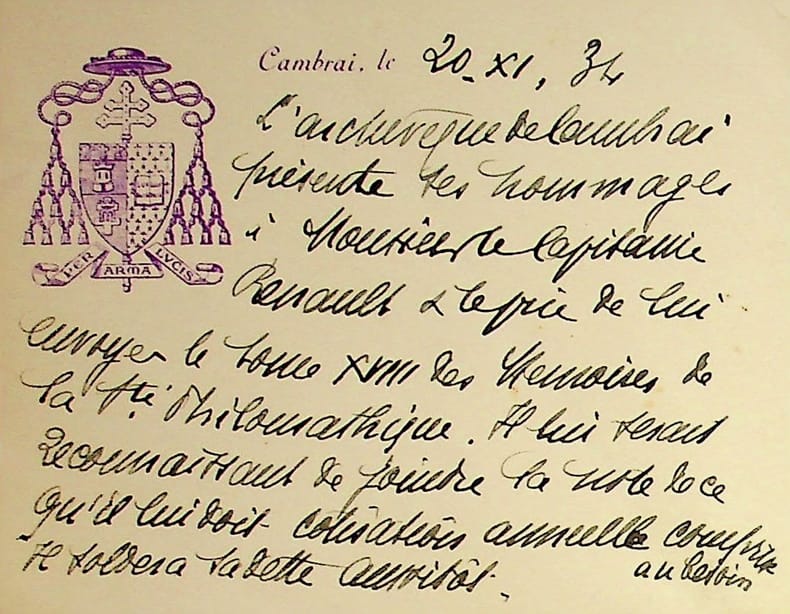 Cambrai, le 20.XI, 34
L'archevêque de Cambrai
présente ses hommages
à Monsieur le Capitaine
Renault & le prie de lui
envoyer le tome XVIII des Memoires de
la Sté Philomathique. Il lui serait
reconnaissant de joindre la note de ce
qu'il lui doit cotisation annuelle comprise
au besoin
Il soldera sa dette aussitôt.
PER ARMA LUCIS